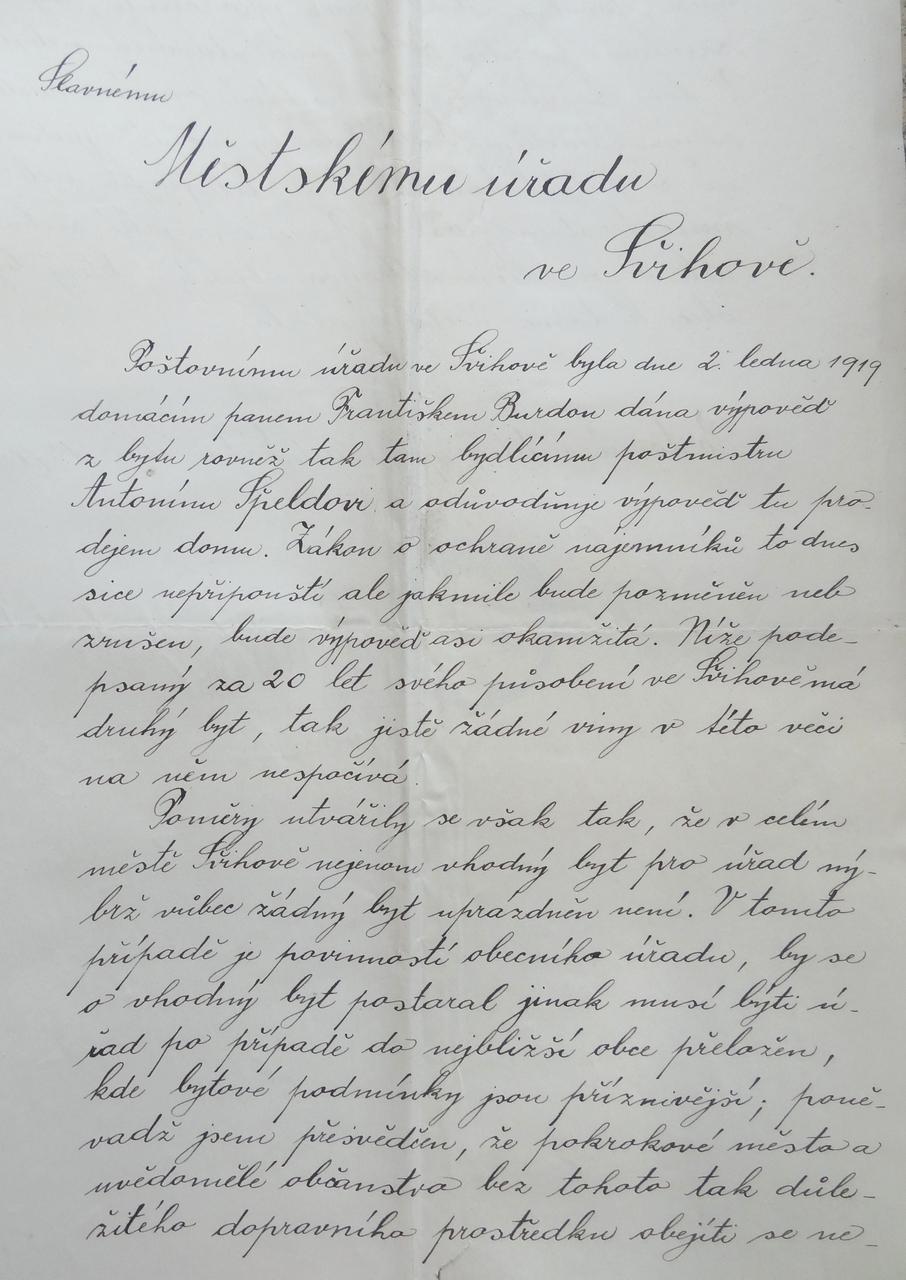 Slavnému
Městskému úřadu
ve Švihově.
Poštovnímu úřadu ve Švihově byla dne 2. ledna 1919
domácím panem Františkem Burdou dána výpověď
z bytu rovněž tak tam bydlícímu poštmistru
Antonínu Špeldovi a odůvodňuje výpověď tu pro-
dejem domu. Zákon o ochraně nájemníků to dnes
sice nepřipouští ale jakmile bude pozměněn neb
zrušen, bude výpověď asi okamžitá. Níže pode-
psaný za 20 let svého působení ve Švihově má
druhý byt, tak jistě žádné viny v této věci
na něm nespočívá.
Poměry utvářily se však tak, že v celém
městě Švihově nejenom vhodný byt pro úřad ný-
brž vůbec žádný byt uprázdněn není. V tomto
případě je povinností obecního úřadu, by se
o vhodný byt postaral jinak musí býti ú-
řad po případě do nejbližší obce přeložen,
kde bytové podmínky jsou příznivější; poně-
vadž jsem přesvědčen, že pokrokové město a
uvědomělé občanstvo bez tohoto tak důle-
žitého dopravního prostředku obejíti se ne-